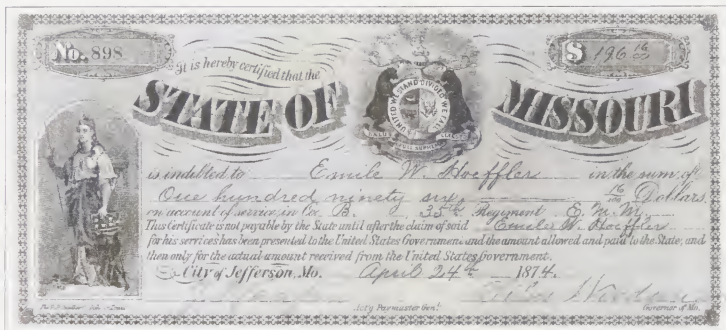 No. 898
$ 196 16/100
It is hereby certified that the
STATE OF MISSOURI
UNITED WE STAND DIVIDED WE FALL
is indebted to Emile W. Hoeffler in the sum of
One hundred ninety six 16/100 Dollars
on account of service in Co. B. 35th Regiment E. M. M.
This Certificate is not payable by the State until after the claim of said Emile W. Hoeffler
for his services has been presented to the United States Government and the amount allowed and paid to the State, and
then only for the actual amount received from the United States Government.
City of Jefferson, Mo. April 24th 1874.
Silas Woodson
Act'g Paymaster Gen'l. Governor of Mo.